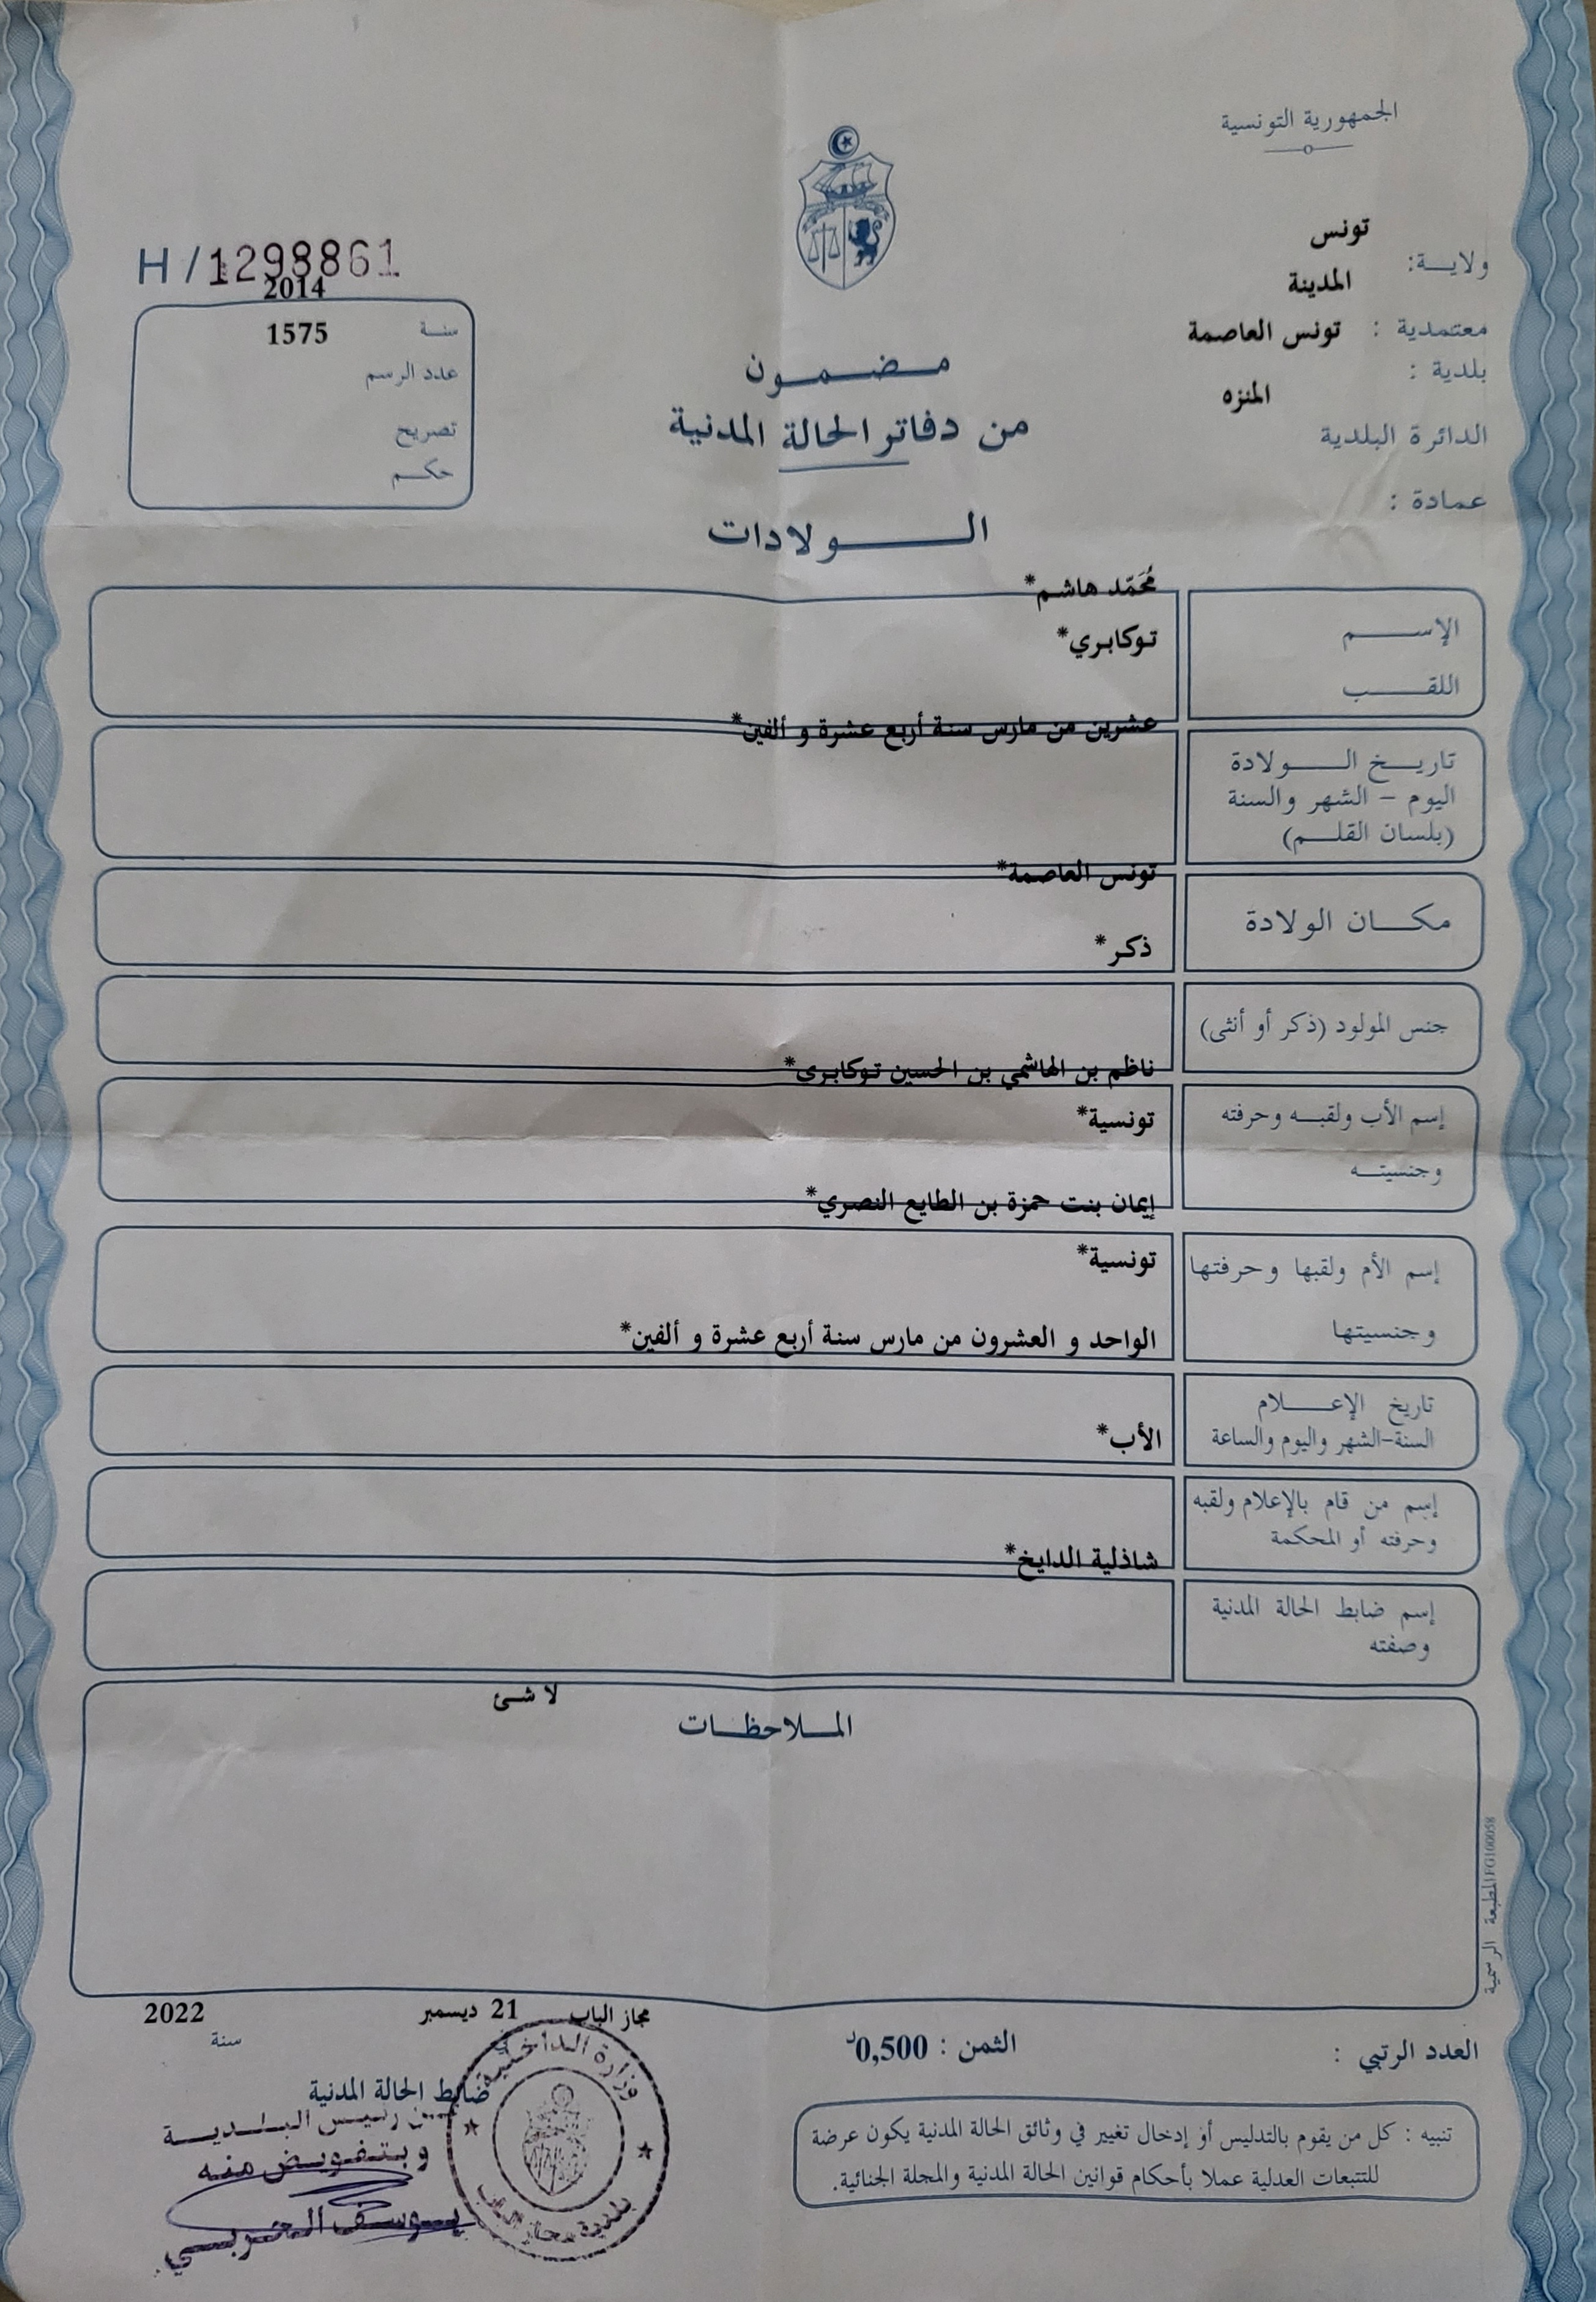 الجمهورية التونسية
تونس
ولايـــة:
المدينة
معتمدية : تونس العاصمة
بلدية :
المنزه
الدائرة البلدية
عمادة :
H/1298861
2014
سنـة 1575
عدد الرسم
تصريح
حكـم
مـــضـــمــــون
من دفاتر الحالة المدنية
الـــــــولادات
مُحَمّد هاشم*
الإســـــم
توكابري*
اللقـــــب
عشرين من مارس سنة أربع عشرة و ألفين*
تاريـــخ الـــــولادة
اليوم - الشهر والسنة
(بلسان القلـــم)
تونس العاصمة*
مكـــان الولادة
ذكر*
جنس المولود (ذكر أو أنثى)
ناظم بن الهاشمي بن الحسين توكابري*
إسم الأب ولقبـــه وحرفته
تونسية*
وجنسيتــه
إيمان بنت حمزة بن الطايع النصري*
إسم الأم ولقبها وحرفتها
تونسية*
وجنسيتها
الواحد و العشرون من مارس سنة أربع عشرة و ألفين*
تاريخ الإعـــــلام
السنة-الشهر واليوم والساعة
الأب*
إسم من قام بالإعلام ولقبه
وحرفته أو المحكمة
شاذلية الدايخ*
إسم ضابط الحالة المدنية
وصفته
لا شئ
المـــلاحظـــات
المطبعة الرسمية FG100058
مجاز الباب 21 ديسمبر 2022
سنة
العدد الرتبي :
الثمن : 0,500د
ضابط الحالة المدنية
عـن رئيس البـلـديـة
وبـتـفويـض منه
يـوسـف الـحـربـي
وزارة الداخلية
بلدية مجاز الباب
تنبيه : كل من يقوم بالتدليس أو إدخال تغيير في وثائق الحالة المدنية يكون عرضة
للتتبعات العدلية عملا بأحكام قوانين الحالة المدنية والمجلة الجنائية.